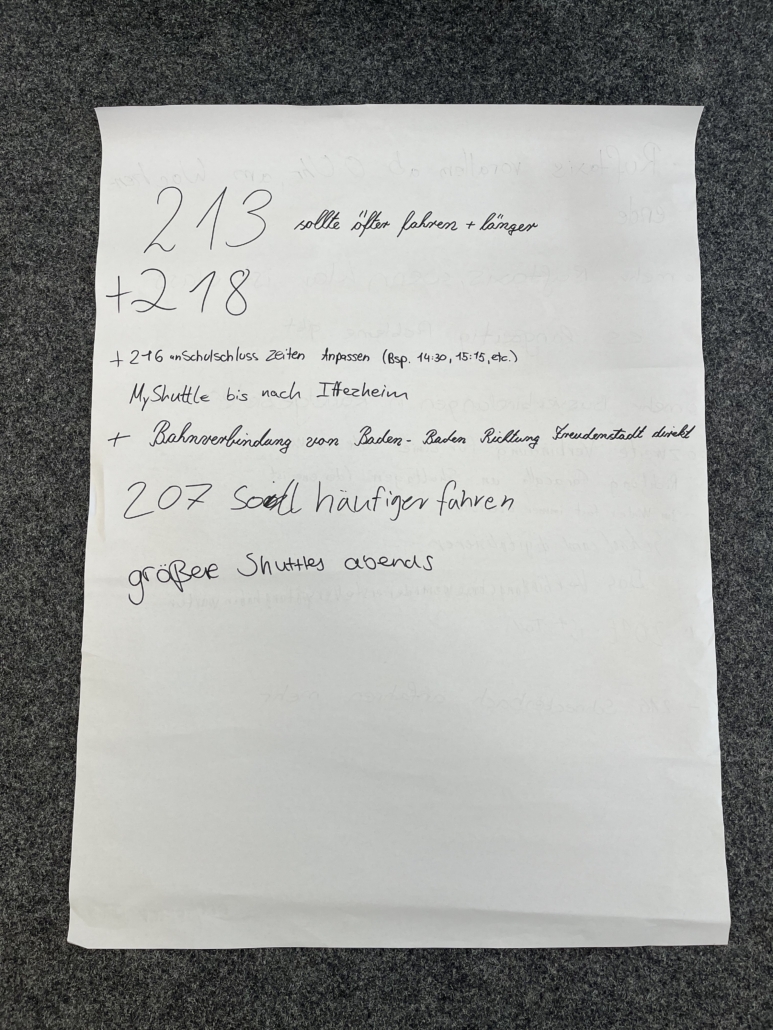 213 sollte öfter fahren + länger
+218
+ 216 an Schulschluss Zeiten Anpassen (Bsp. 14:30, 15:15, etc.)
MyShuttle bis nach Iffezheim
+ Bahnverbindung von Baden-Baden Richtung Freudenstadt direkt
207 soll häufiger fahren
größere Shuttles abends